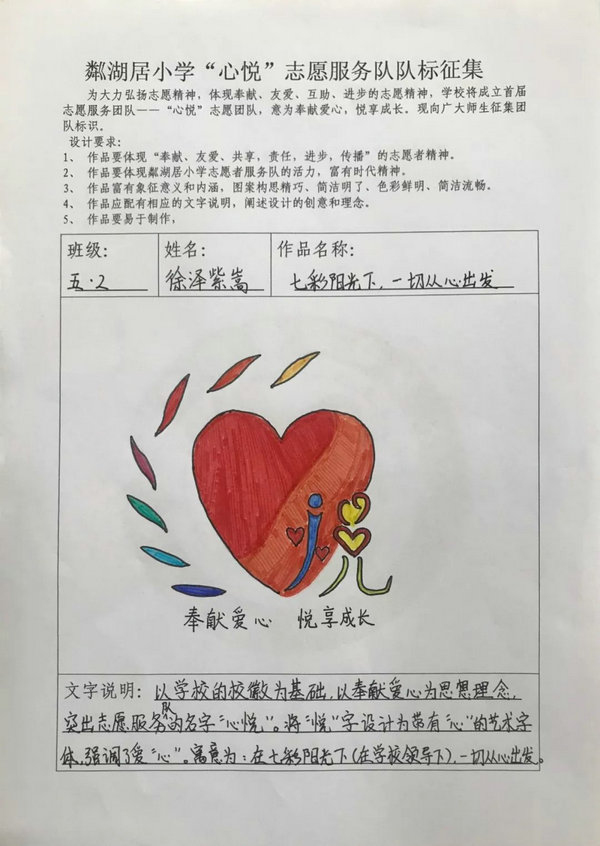 粼湖居小学“心悦”志愿服务队队标征集
为大力弘扬志愿精神，体现奉献、友爱、互助、进步的志愿精神，学校将成立首届
志愿服务团队——“心悦”志愿团队，意为奉献爱心，悦享成长。现向广大师生征集团
队标识。
设计要求：
1、 作品要体现“奉献、友爱、共享，责任，进步，传播”的志愿者精神。
2、 作品要体现粼湖居小学志愿者服务队的活力，富有时代精神。
3、 作品富有象征意义和内涵，图案构思精巧、简洁明了、色彩鲜明、简洁流畅。
4、 作品应配有相应的文字说明，阐述设计的创意和理念。
5、 作品要易于制作，
班级： 姓名： 作品名称：
五·2 徐泽紫嵩 七彩阳光下，一切从心出发
悦
奉献爱心 悦享成长
文字说明：以学校的校徽为基础，以奉献爱心为思想理念，
突出志愿服务队的名字“心悦”。将“悦”字设计为带有“心”的艺术字
体，强调了爱“心”。寓意为：在七彩阳光下（在学校领导下），一切从心出发。